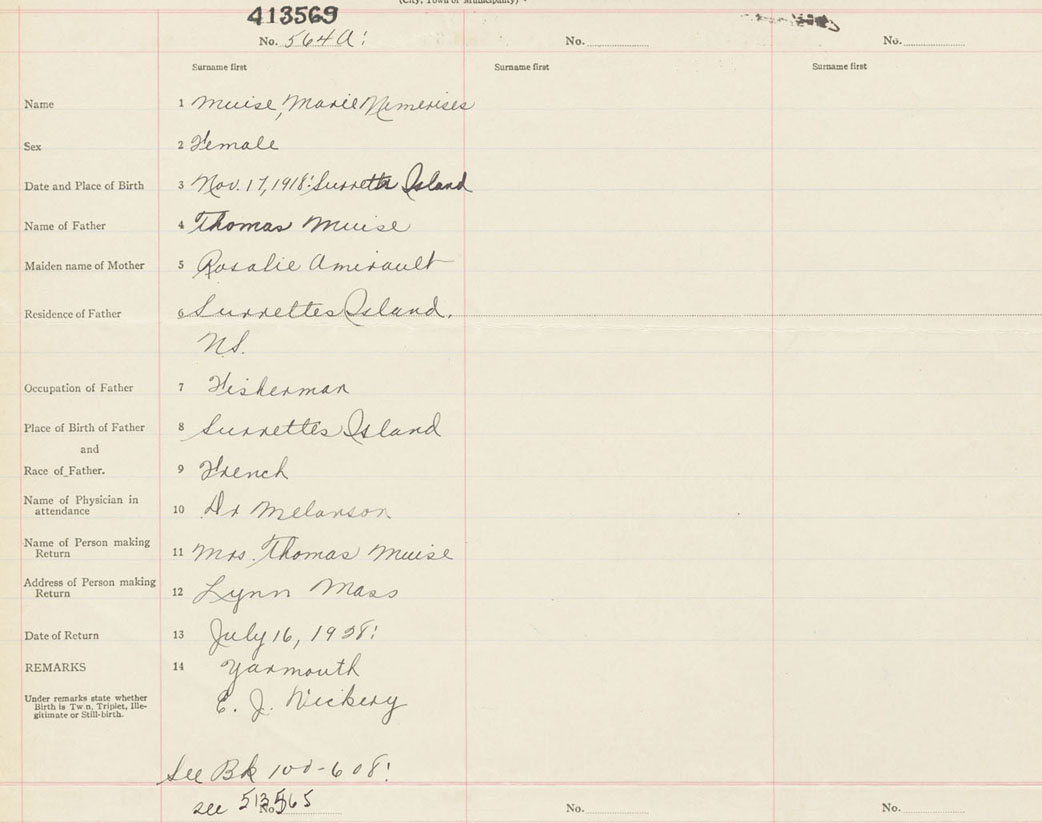 (City, Town or Municipality)
413569
No. 564A! No. No.
Surname first Surname first Surname first
Name 1 Muise, Marie Nemerises
Sex 2 Female
Date and Place of Birth 3 Nov. 17, 1918! Surrette Island
Name of Father 4 Thomas Muise
Maiden name of Mother 5 Rosalie Amirault
Residence of Father 6 Surrettes Island,
N.S.
Occupation of Father 7 Fisherman
Place of Birth of Father 8 Surrettes Island
and
Race of Father. 9 French
Name of Physician in
attendance 10 Dr Melanson
Name of Person making
Return 11 Mrs. Thomas Muise
Address of Person making
Return 12 Lynn Mass
Date of Return 13 July 16, 1938!
REMARKS 14 Yarmouth
E. J. Vickery
Under remarks state whether
Birth is Twin, Triplet, Ille-
gitimate or Still-birth.
See Bk 100-608!
see 513565
No. No. No.